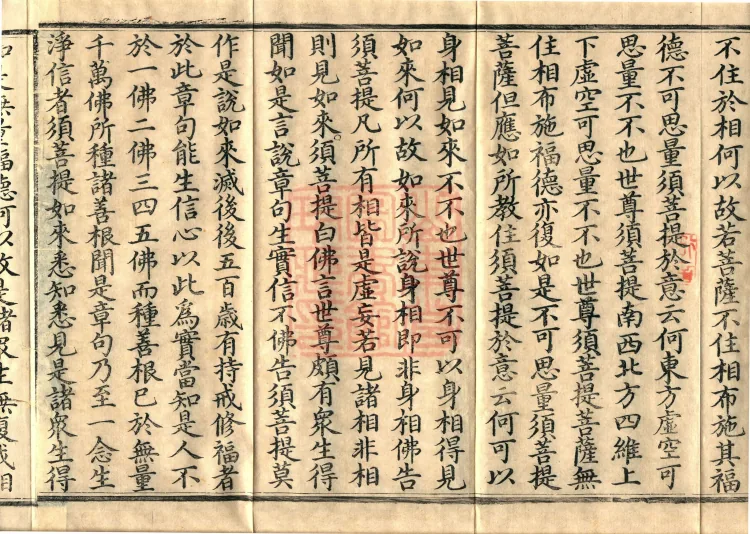 不住於相何以故若菩薩不住相布施其福
德不可思量須菩提於意云何東方虛空可
思量不不也世尊須菩提南西北方四維上
下虛空可思量不不也世尊須菩提菩薩無
住相布施福德亦復如是不可思量須菩提
菩薩但應如所教住須菩提於意云何可以
身相見如來不不也世尊不可以身相得見
如來何以故如來所說身相即非身相佛告
須菩提凡所有相皆是虛妄若見諸相非相
則見如來。須菩提白佛言世尊頗有衆生得
聞如是言說章句生實信不佛告須菩提莫
作是說如來滅後後五百歲有持戒修福者
於此章句能生信心以此為實當知是人不
於一佛二佛三四五佛而種善根已於無量
千萬佛所種諸善根聞是章句乃至一念生
淨信者須菩提如來悉知悉見是諸衆生得
如是無量福德何以故是諸衆生無復我相